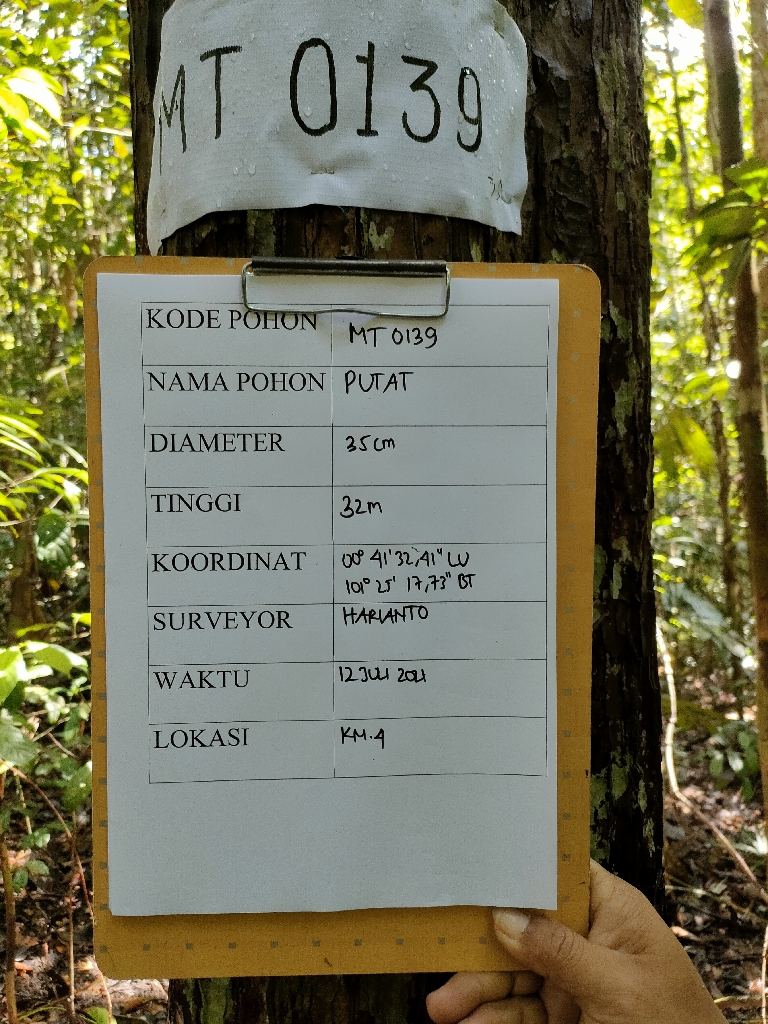 MT 0139
KODE POHON MT 0139
NAMA POHON PUTAT
DIAMETER 35cm
TINGGI 32m
KOORDINAT 00° 41' 32,41" LU
101° 25' 17,73" BT
SURVEYOR HARIANTO
WAKTU 12 JULI 2021
LOKASI KM.4